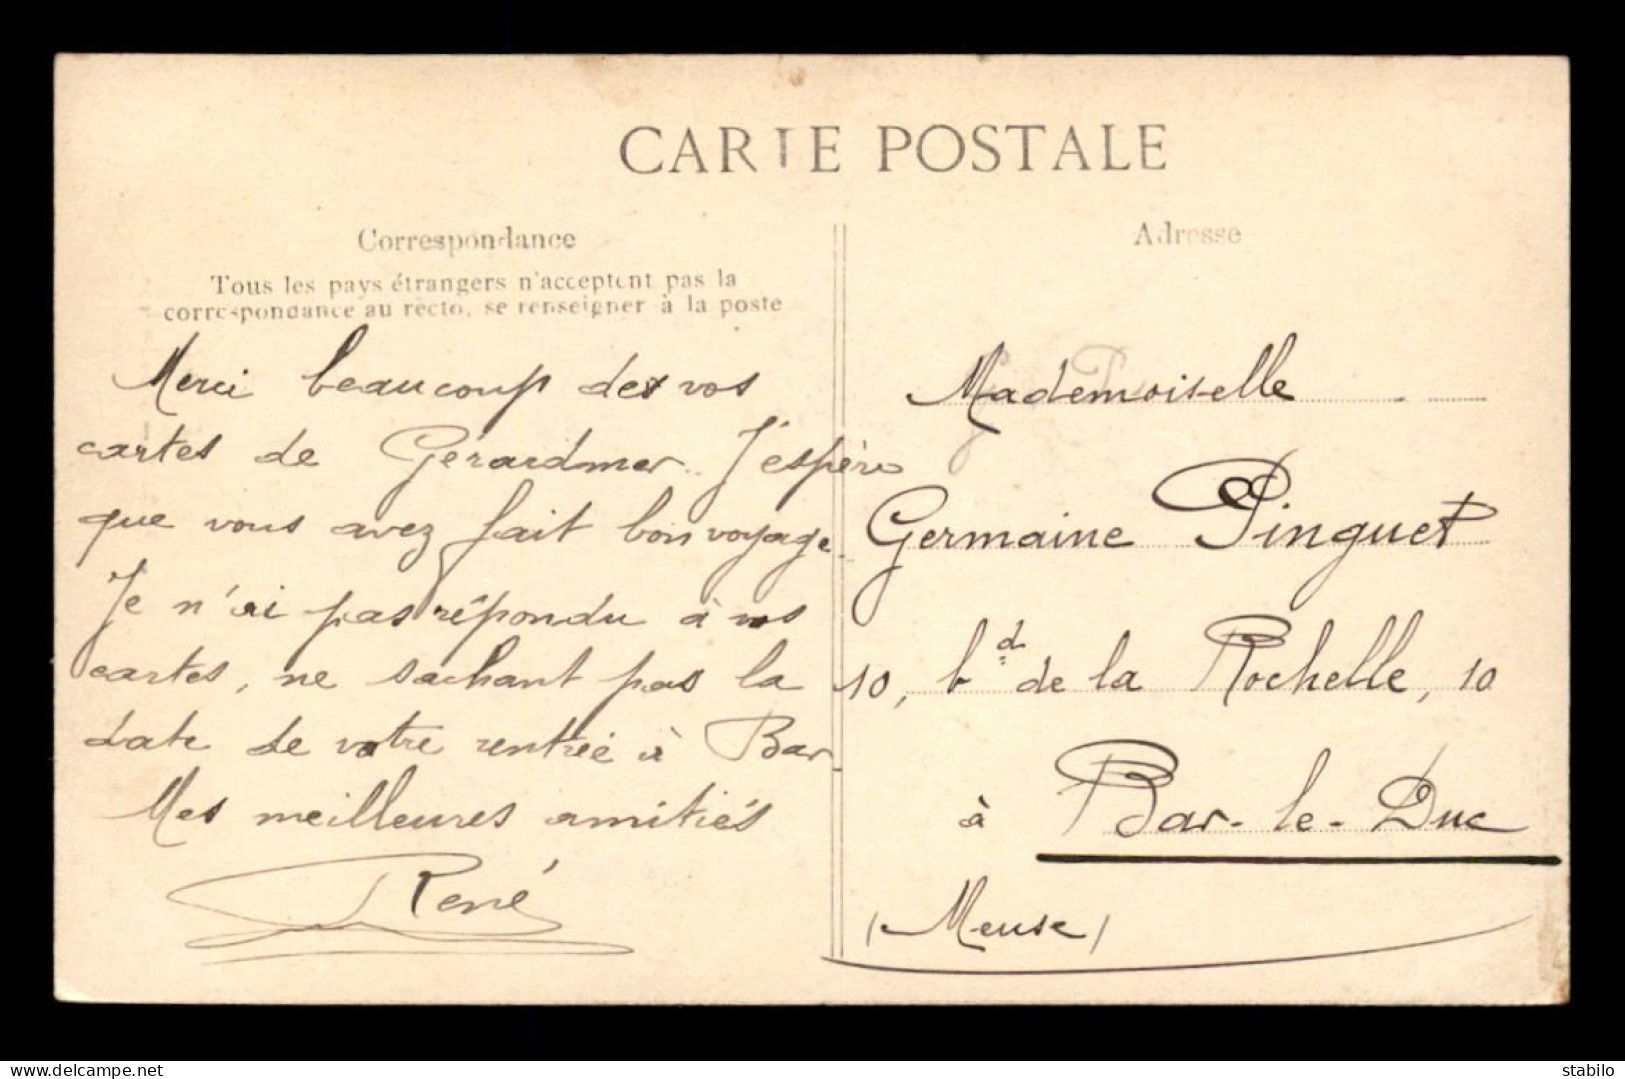 CARTE POSTALE
Correspondance
Tous les pays étrangers n'acceptent pas la
correspondance au recto, se renseigner à la poste
Merci beaucoup de vos
cartes de Gérardmer. J'espère
que vous avez fait bon voyage.
Je n'ai pas répondu à vos
cartes, ne sachant pas la
date de votre rentrée à Bar.
Mes meilleures amitiés
René
Adresse
Mademoiselle
Germaine Pinguet
10, bd de la Rochelle, 10
à Bar-le-Duc
(Meuse)
delcampe.net
stabilo